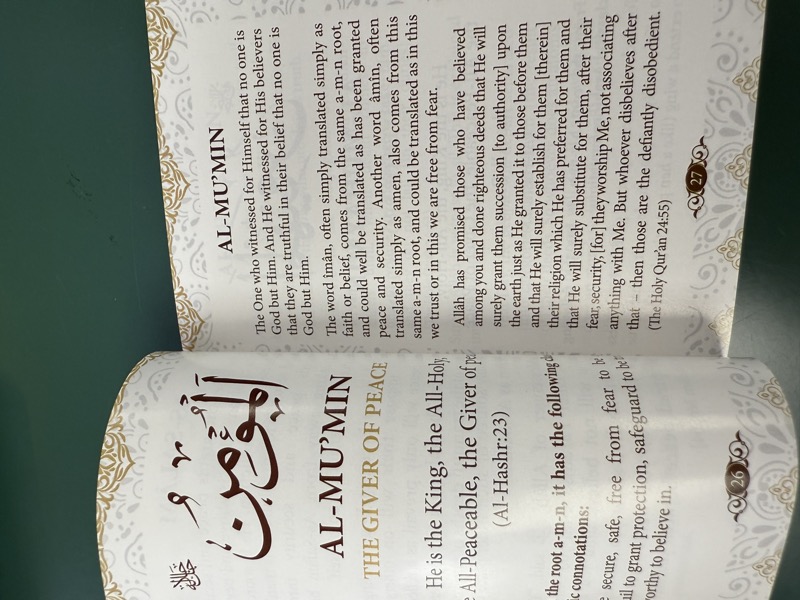 جل جلاله
الْمُؤْمِنُ
AL-MU’MIN
THE GIVER OF PEACE
He is the King, the All-Holy,
All-Peaceable, the Giver of
(Al-Hashr:23)
the root a-m-n, it has the following
connotations:
secure, safe, free from fear to be
to grant protection, safeguard to be
worthy to believe in.
26
AL-MU’MIN
The One who witnessed for Himself that no one is
God but Him. And He witnessed for His believers
that they are truthful in their belief that no one is
God but Him.
The word Imân, often simply translated simply as
faith or belief, comes from the same a-m-n root,
and could well be translated as has been granted
peace and security. Another word âmîn, often
translated simply as amen, also comes from this
same a-m-n root, and could be translated as in this
we trust or in this we are free from fear.
Allâh has promised those who have believed
among you and done righteous deeds that He will
surely grant them succession [to authority] upon
the earth just as He granted it to those before them
and that He will surely establish for them [therein]
their religion which He has preferred for them and
that He will surely substitute for them, after their
fear, security, [for] they worship Me, not associating
anything with Me. But whoever disbelieves after
that – then those are the defiantly disobedient.
(The Holy Qur’an 24:55)
27